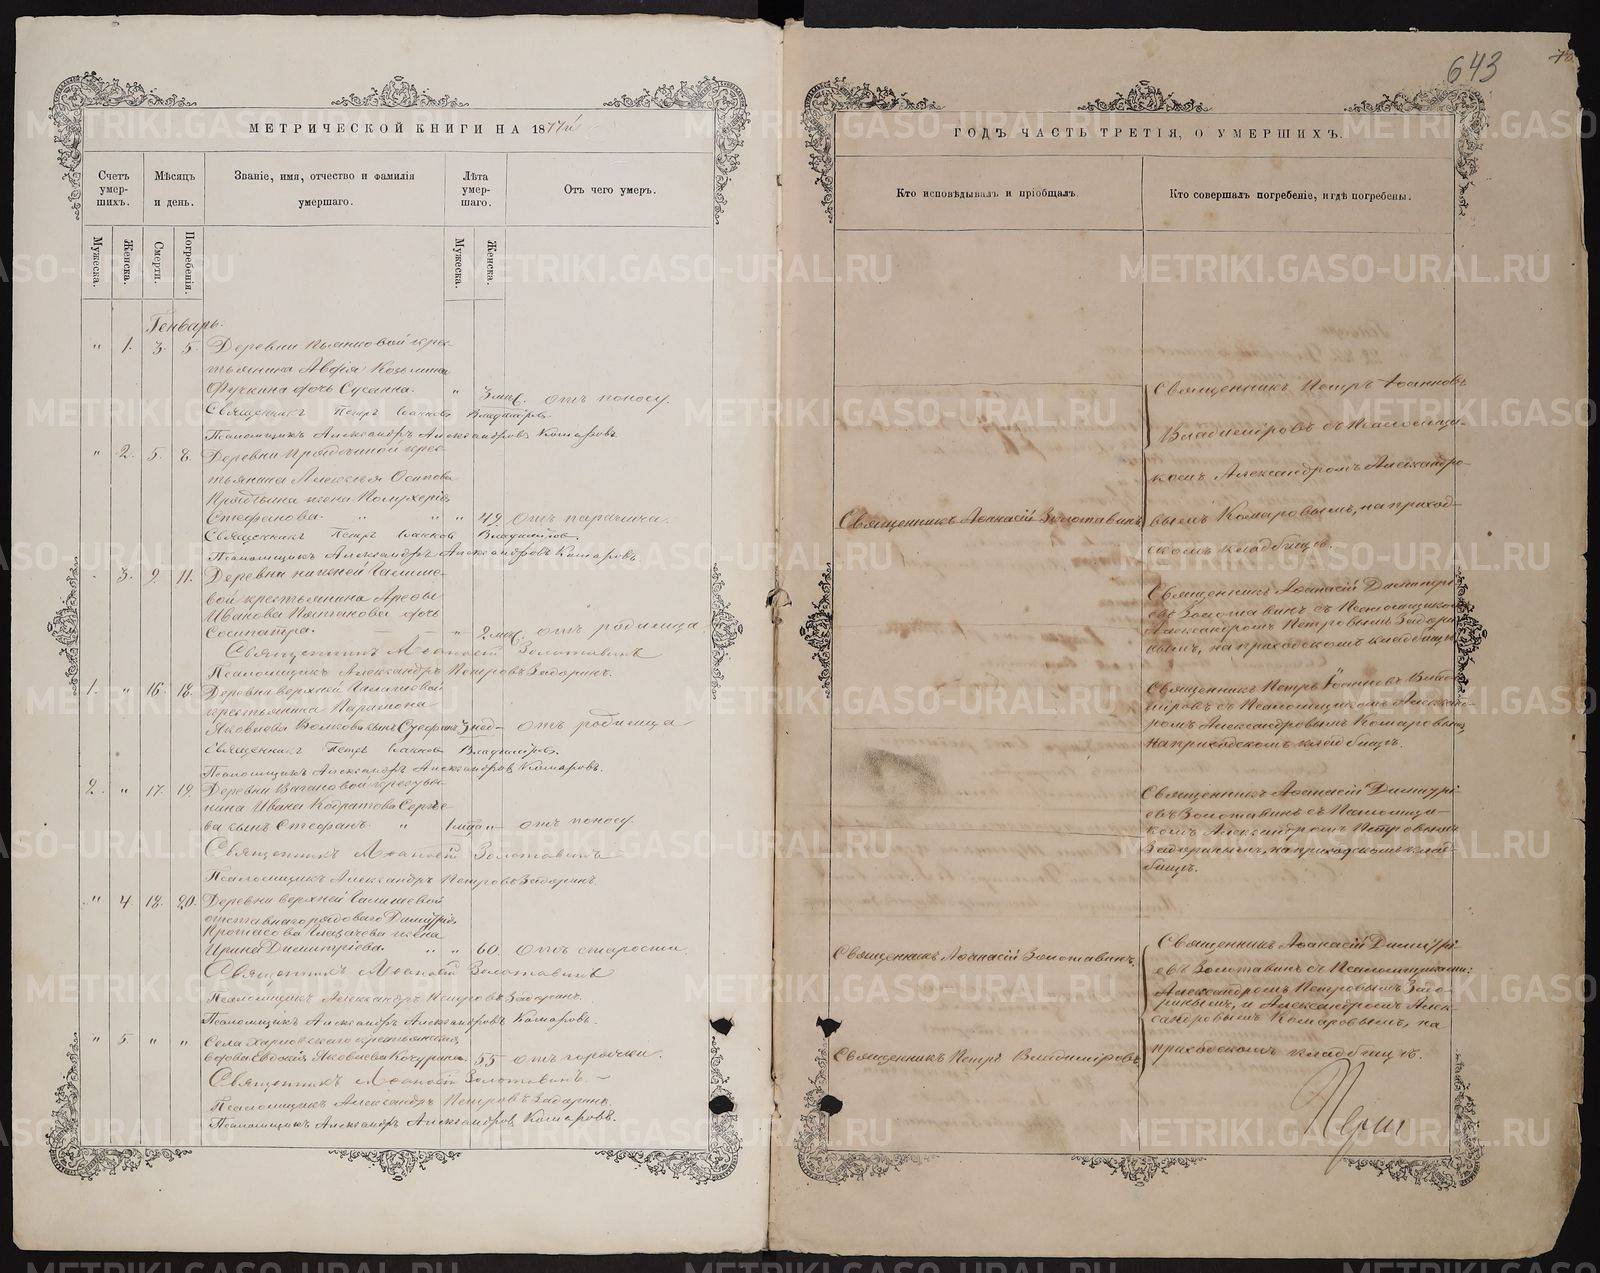 643
МЕТРИЧЕСКОЙ КНИГИ НА 1877й
Счетъ умер-шихъ.
Мѣсяцъ и день.
Званіе, имя, отчество и фамилія умершаго.
Лѣта умер-шаго.
Отъ чего умеръ.
Мужеска.
Женска.
Смерти.
Погребенія.
Мужеска.
Женска.
Генварь.
" 1. 3. 5. Деревни
Сусанна. " 3 мѣс. отъ поносу.
Священникъ Петръ Іоанновъ Владиміровъ.
Псаломщикъ Александръ Александровъ Комаровъ
" 2. 5. 8. Деревни крес-
тьянина Алексѣя Осипова
жена
Стефанова. " " " 49. отъ паралича.
Священникъ Петръ Іоанновъ Владиміровъ.
Псаломщикъ Александръ Александровъ Комаровъ
3. 9. 11. Деревни нижней
вой крестьянина
Иванова дочь
Сосипатра. " 2 мѣс. отъ родимца
Священникъ Аѳанасій Золотавинъ
Псаломщикъ Александръ Петровъ Задоринъ.
1. " 16. 18. Деревни верхней
крестьянина Парамона
Яковлева Волкова сынъ Стефанъ 3 нед— отъ родимца
Священникъ Петръ Іоанновъ Владиміровъ.
Псаломщикъ Александръ Александровъ Комаровъ.
2. " 17. 19. Деревни Вагановой крестья-
нина Ивана Сергѣе-
ва сынъ Стефанъ. " отъ поносу.
Священникъ Аѳанасій Золотавинъ
Псаломщикъ Александръ Петровъ Задоринъ.
" 4. 18. 20. Деревни верхней
отставнаго рядоваго Димитрія
жена
Ирина Димитріева. " " 60. отъ старости
Священникъ Аѳанасій Золотавинъ
Псаломщикъ Александръ Петровъ Задоринъ.
Псаломщикъ Александръ Александровъ Комаровъ.
" 5. " " Села крестьянская
вдова Евдокія Яковлева 55 отъ горячки.
Священникъ Аѳанасій Золотавинъ.
Псаломщикъ Александръ Петровъ Задоринъ
Псаломщикъ Александръ Александровъ Комаровъ.
ГОДЪ, ЧАСТЬ ТРЕТІЯ, О УМЕРШИХЪ.
Кто исповѣдывалъ и пріобщалъ.
Кто совершалъ погребеніе, и гдѣ погребены.
Священникъ Петръ Іоанновъ
Владиміровъ съ Псаломщи-
комъ Александромъ Александро-
Священникъ Аѳанасій Золотавинъ
вымъ Комаровымъ, на приход-
скомъ кладбищѣ.
Священникъ Аѳанасій Димитрі-
евъ Золотавинъ съ Псаломщикомъ
Александромъ Петровымъ Задори-
нымъ, на приходскомъ кладбищѣ
Священникъ Петръ Іоанновъ Влади-
міровъ съ Псаломщикомъ Алексан-
ромъ Александровымъ Комаровымъ
на приходскомъ кладбищѣ.
Священникъ Аѳанасій Димитрі-
евъ Золотавинъ съ Псаломщи-
комъ Александромъ Петровымъ
Задоринымъ, на приходскомъ клад-
бищѣ.
Священникъ Аѳанасій Золотавинъ.
Священникъ Аѳанасій Димитрі-
евъ Золотавинъ съ Псаломщиками:
Александромъ Петровымъ Задо-
ринымъ, и Александромъ Алек-
сандровымъ Комаровымъ, на
приходскомъ кладбищѣ.
Священникъ Петръ Владиміровъ
METRIKI.GASO-URAL.RU